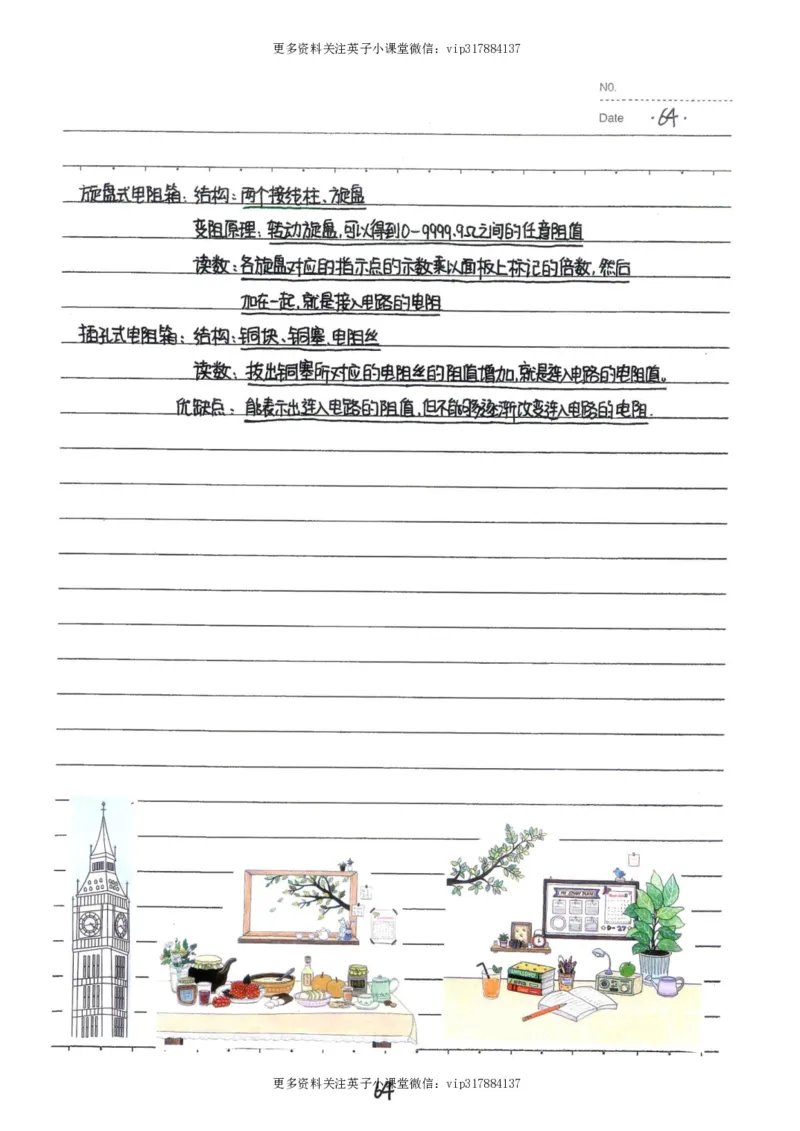 更多资料关注英子小课堂微信：vip317884137
NO.
Date ·64·
旋盘式电阻箱：结构：两个接线柱、旋盘
变阻原理：转动旋盘，可以得到0-9999.9Ω之间的任意阻值
读数：各旋盘对应的指示点的示数乘以面板上标记的倍数，然后
加在一起，就是接入电路的电阻
插孔式电阻箱：结构：铜块、铜塞、电阻丝
读数：拔出铜塞所对应的电阻丝的阻值增加，就是连入电路的电阻值。
优缺点：能表示出连入电路的阻值，但不能够逐渐改变连入电路的电阻.
MY STUDY PLAN
D-27
更多资料关注英子小课堂微信：vip317884137
64